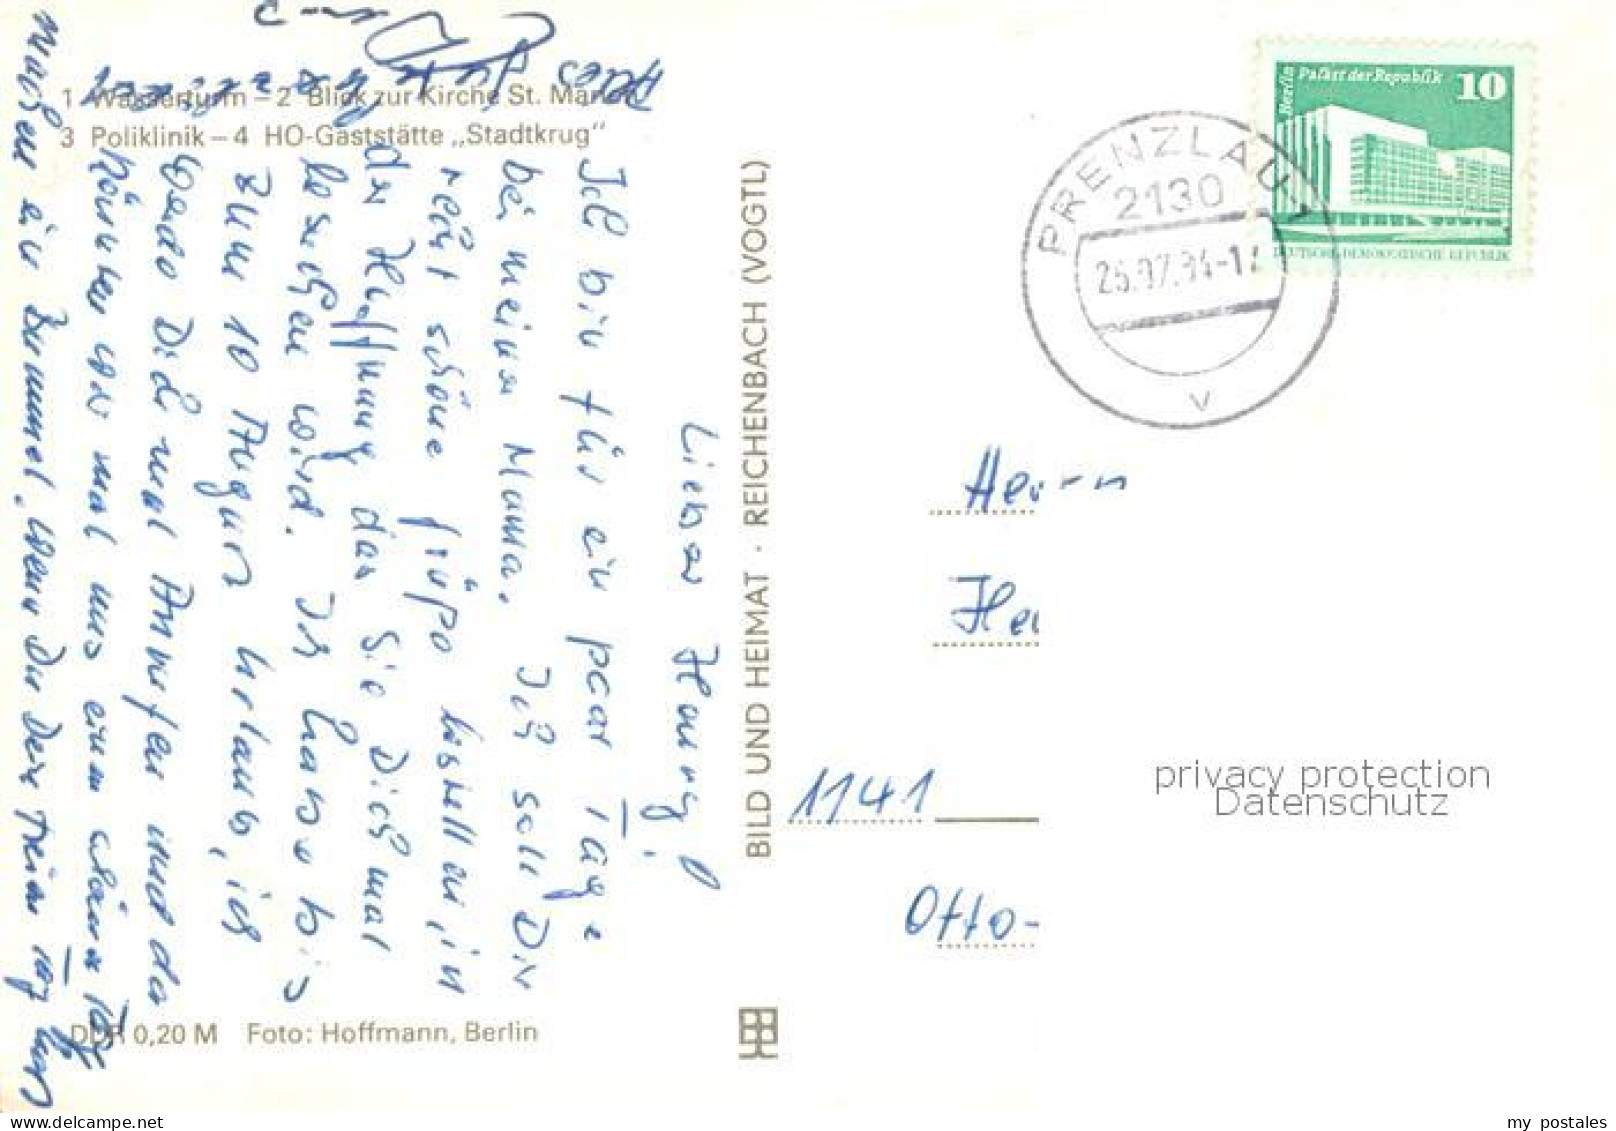 1 Wasserturm – 2 Blick zur Kirche St. Marien
3 Poliklinik – 4 HO-Gaststätte „Stadtkrug"
Lieber Henry!
Ich bin für ein paar Tage
bei meiner Mama. Ich soll Dir
recht schöne Grüße bestellen, in
der Hoffnung das sie Dich mal
besuchen wird. Ich habe bis
zum 10 August Urlaub, ich
werde Dich mal Anrufen und da
können wir mal uns einen schönen Tag
machen ein Bummel, wenn Du
Alles
DDR 0,20 M Foto: Hoffmann, Berlin
BILD UND HEIMAT · REICHENBACH (VOGTL)
Berlin Palast der Republik 10
DEUTSCHE DEMOKRATISCHE REPUBLIK
PRENZLAU 1
2130
v
Herrn
1141
Otto-
privacy protection
Datenschutz
delcampe.net
my_postales